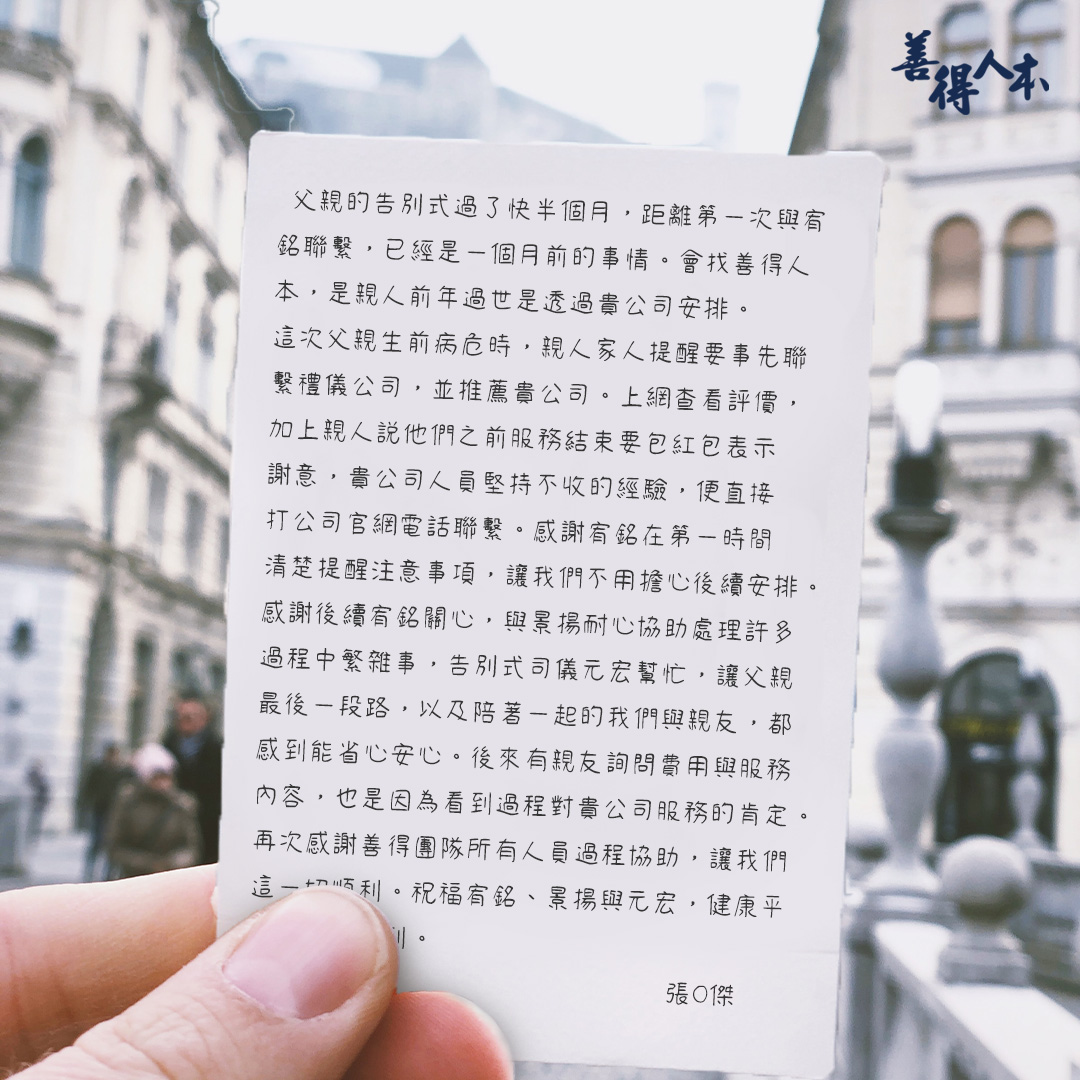 善得人本
父親的告別式過了快半個月，距離第一次與宥
銘聯繫，已經是一個月前的事情。會找善得人
本，是親人前年過世是透過貴公司安排。
這次父親生前病危時，親人家人提醒要事先聯
繫禮儀公司，並推薦貴公司。上網查看評價，
加上親人說他們之前服務結束要包紅包表示
謝意，貴公司人員堅持不收的經驗，便直接
打公司官網電話聯繫。感謝宥銘在第一時間
清楚提醒注意事項，讓我們不用擔心後續安排。
感謝後續宥銘關心，與景揚耐心協助處理許多
過程中繁雜事，告別式司儀元宏幫忙，讓父親
最後一段路，以及陪著一起的我們與親友，都
感到能省心安心。後來有親友詢問費用與服務
內容，也是因為看到過程對貴公司服務的肯定。
再次感謝善得團隊所有人員過程協助，讓我們
這一切順利。祝福宥銘、景揚與元宏，健康平
利。
張〇傑